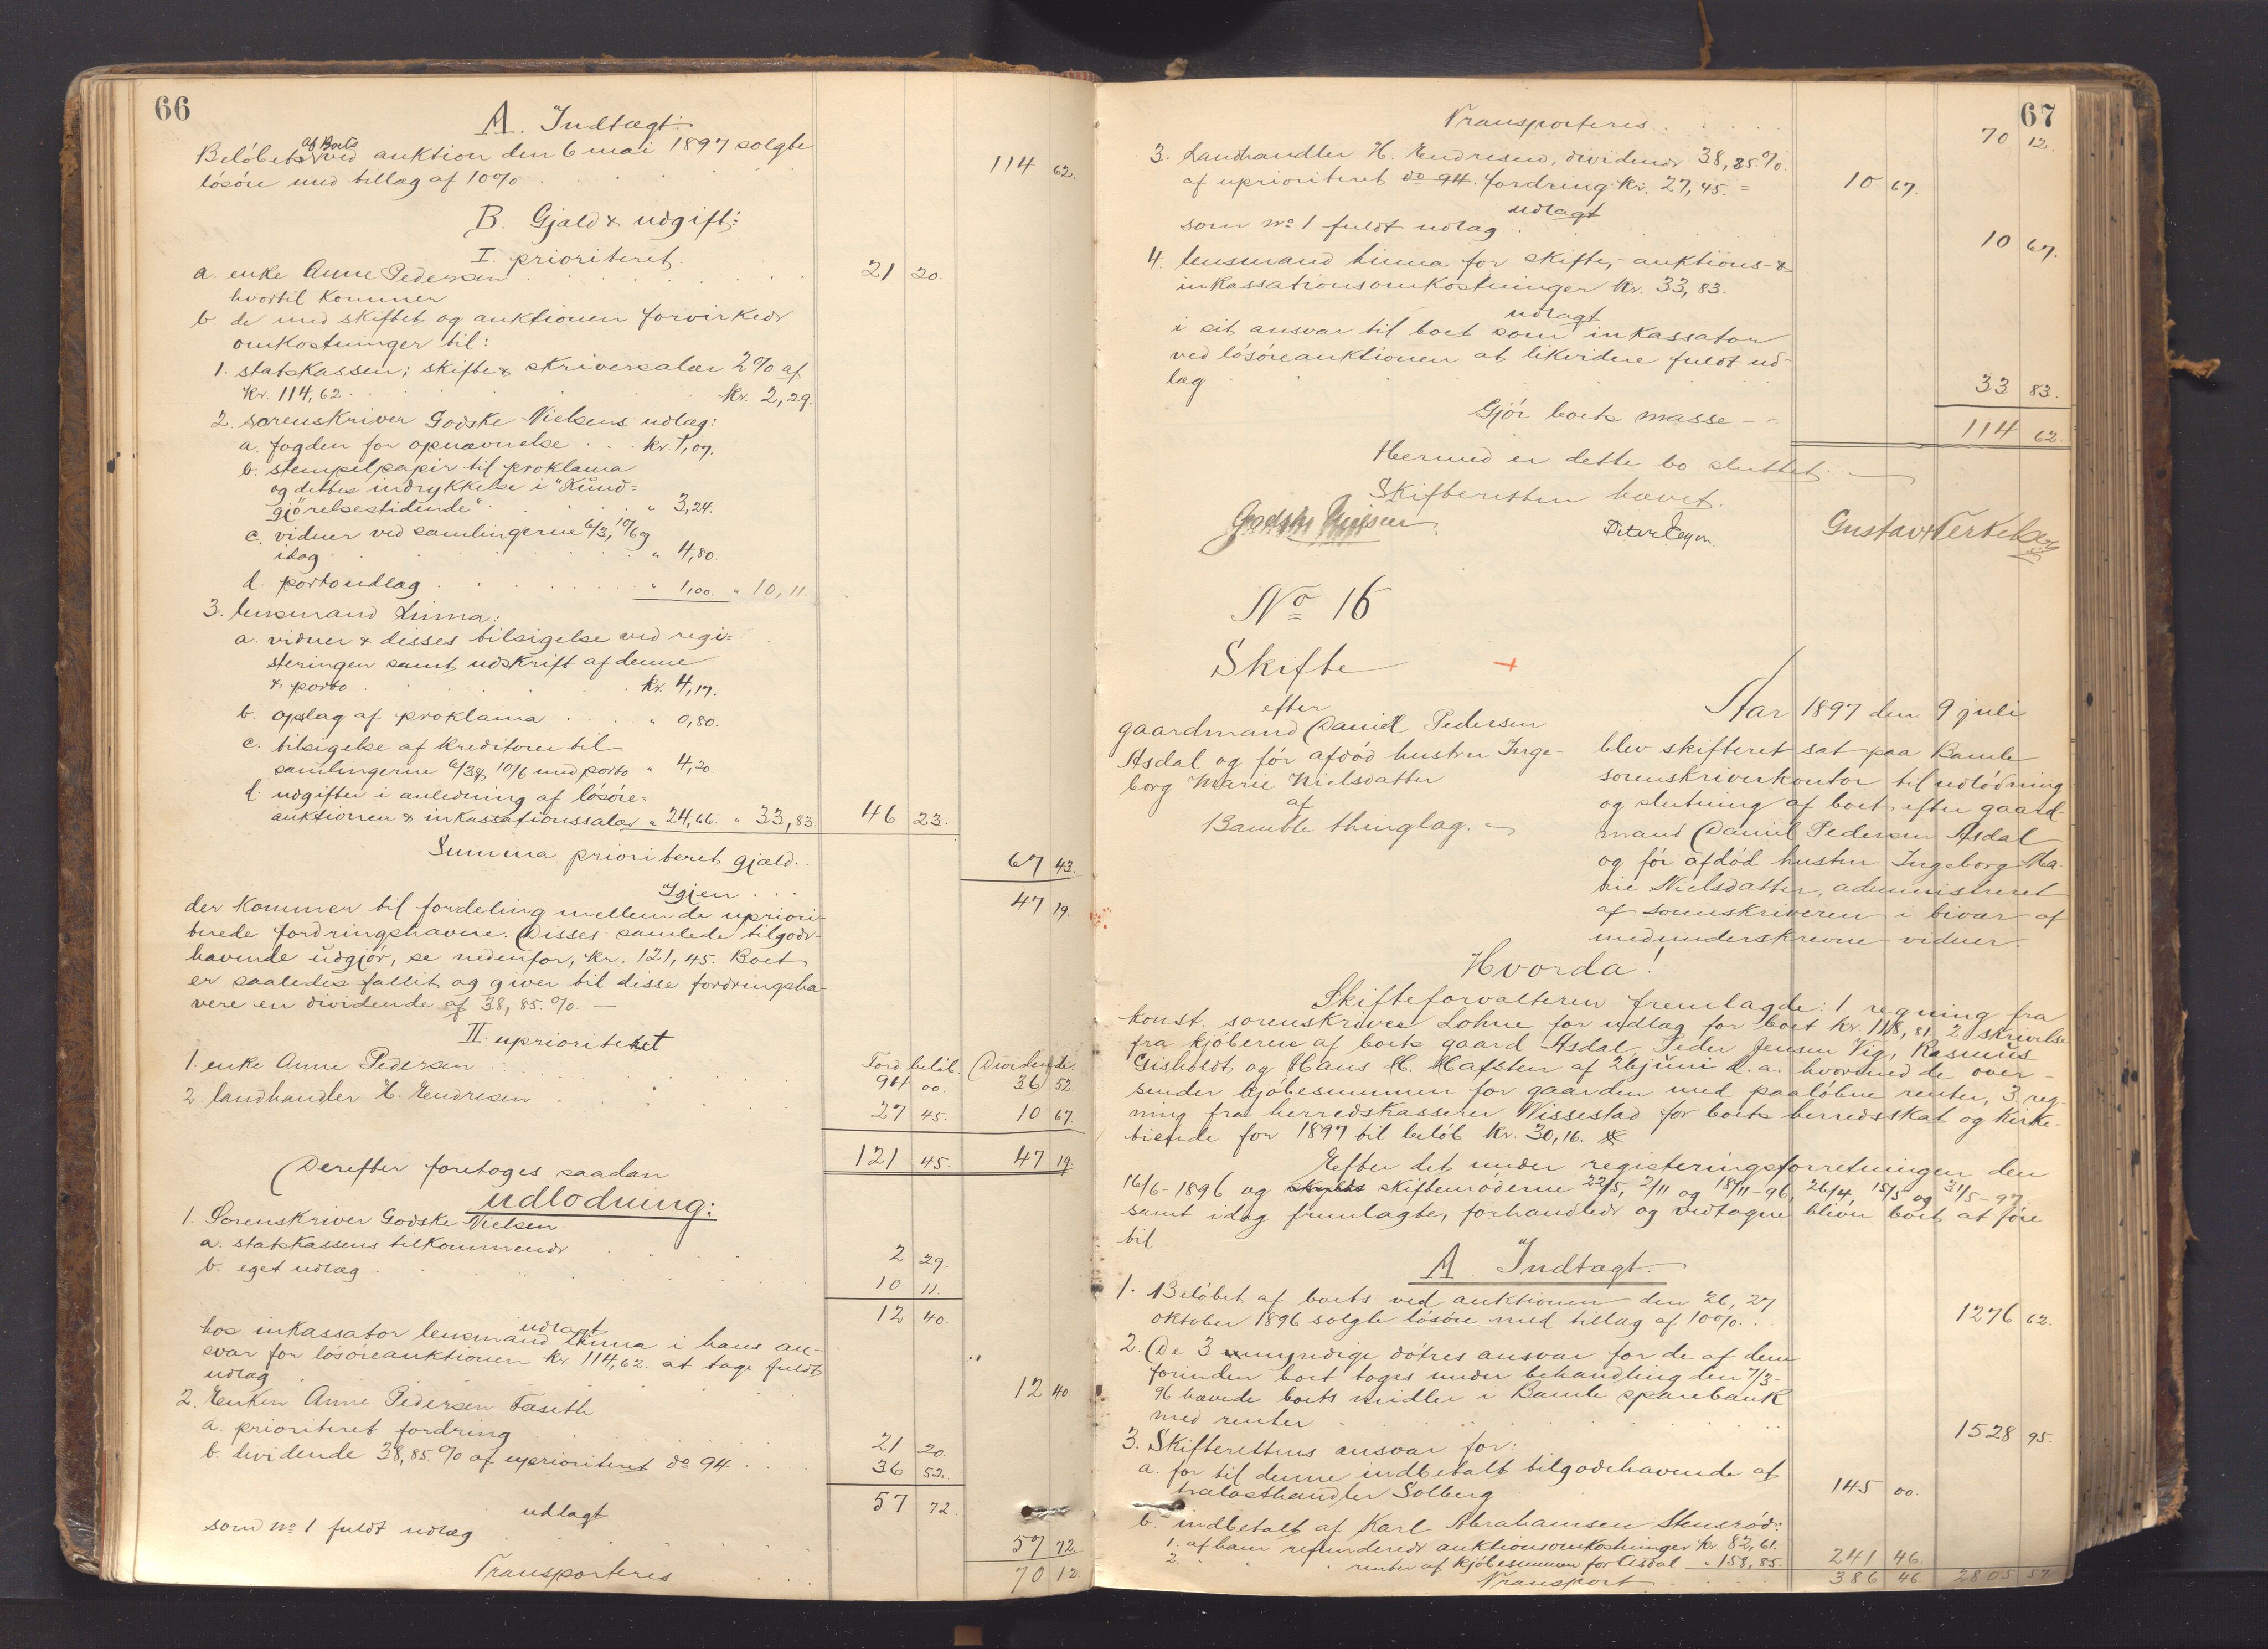 66
A. Indtægt:
af Boets
Beløbet ved auktion den 6 mai 1897 solgte 114 62.
løsøre med tillæg af 10%
B. Gjæld & udgift:
I. prioriteret.
a. enke Anne Pedersen 21 20.
hvortil kommer
b. de med skiftet og auktionen forvirkede
omkostninger til:
1. statskassen; skifte & skriversalær 2% af
kr. 114,62. kr. 2,29.
2. sorenskriver Godske Nielsens udlæg:
a. fogden for opnævnelse . . kr. 1,07.
b. stempelpapir til proklama
og dettes indrykkelse i "Kund=
gjørelsestidende" " 3,24.
c. vidner ved samlingerne 6/3, 10/6 og
idag " 4,80.
d. portoudlæg " 1,00. " 10,11.
3. lensmand Linna:
a. vidner & disses tilsigelse ved regi=
steringen samt udskrift af denne
& porto kr. 4,17.
b. opslag af proklama " 0,80.
c. tilsigelse af kreditorer til
samlingerne 6/3 & 10/6 med porto " 4,20.
d. udgifter i anledning af løsøre=
auktionen & inkassationssalær " 24,66. " 33,83. 46 23.
Summa prioriteret gjæld.. 67 43.
Igjen . . . 47 19.
der kommer til fordeling mellem de upriori-
terede fordringshavere. Disses samlede tilgode-
havende udgjør, se nedenfor, kr. 121,45. Boet
er saaledes fallit og giver til disse fordringsha-
vere en dividende af 38,85.%. —
II. uprioriteret
Ford. beløb Dividende
1. enke Anne Pedersen 94 00. 36 52.
2. landhandler H. Endresen 27 45. 10 67.
121 45. 47 19.
Derefter foretoges saadan
udlodning:
1. Sorenskriver Godske Nielsen
a. statskassens tilkommende 2 29.
b. eget udlæg 10 11.
12 40.
udlagt
hos inkassator lensmand Linna i hans an-
svar for løsøreauktionen kr. 114,62. at tage fuldt
udlæg 12 40.
2. Enken Anne Pedersen Faseth
a. prioriteret fordring 21 20.
b. dividende 38,85.% af uprioriteret do 94 36 52.
57 72.
udlagt
som no 1 fuldt udlæg 57 72.
Transporteres 70 12.
67
Transporteres 70 12.
3. Landhandler H. Endresen, dividende 38,85.%.
af uprioriteret do 94. fordring kr. 27,45. = 10 67.
udlagt
som no 1 fuldt udlæg 10 67.
4. lensmand Linna for skifte,- auktions- &
inkassationsomkostninger kr. 33,83.
udlagt
i sit ansvar til boet som inkassator
ved løsøreauktionen at likvidere fuldt ud-
læg 33 83.
Gjør boets masse - - 114 62.
Hermed er dette bo sluttet. —
Skifteretten hævet.
Godske Nielsen Gustav Terkelsen
No 16
Skifte
efter
gaardmand Daniel Pedersen
Asdal og før afdød hustru Inge-
borg Marie Nielsdatter
af
Bamble thinglag. -
Aar 1897 den 9 juli
blev skifteret sat paa Bamle
sorenskriverkontor til udlødning
og slutning af boet efter gaard-
mand Daniel Pedersen Asdal
og før afdød hustru Ingeborg Ma-
rie Nielsdatter, administreret
af sorenskriveren i bivær af
medunderskrevne vidner.
Hvorda!
Skifteforvalteren fremlagde: 1 regning fra
konst. sorenskriver Lohne for udlæg for boet kr. 118,81. 2 skrivelse
fra kjøberne af boets gaard Asdal Peder Jensen Vig, Rasmus
Gisholdt og Hans H. Hafsten af 26 juni d.a. hvormed de over-
sender kjøbesummen for gaarden med paaløbne renter, 3. reg-
ning fra herredskasserer Nissestad for boets herredsskat og kirke-
tiende for 1897 til beløb kr. 30,16.
Efter det under registeringsforretningen den
16/6-1896 og skiftemøderne 22/5, 2/11 og 18/11-96, 26/4, 15/5 og 31/5-97.
samt idag fremlagte, forhandlede og vedtagne bliver boet at føre
til
A. Indtægt.
1. Beløbet af boets ved auktionen den 26, 27
oktober 1896 solgte løsøre med tillæg af 10%. . . 1276 62.
2. De 3 umyndige døtres ansvar for de af dem
forinden boet toges under behandling den 7/3-
96 hævede boets midler i Bamle sparebank
med renter 1528 95.
3. Skifterettens ansvar for:
a. for til denne indbetalt tilgodehavende af
trælasthandler Solberg 145 00.
b. indbetalt af Karl Abrahamsen Stensrød:
1. af ham refunderede auktionsomkostninger kr. 82,61.
2. " " renter af kjøbesummen for Asdal " 158,85. 241 46.
Transport 386 46. 2805 57.